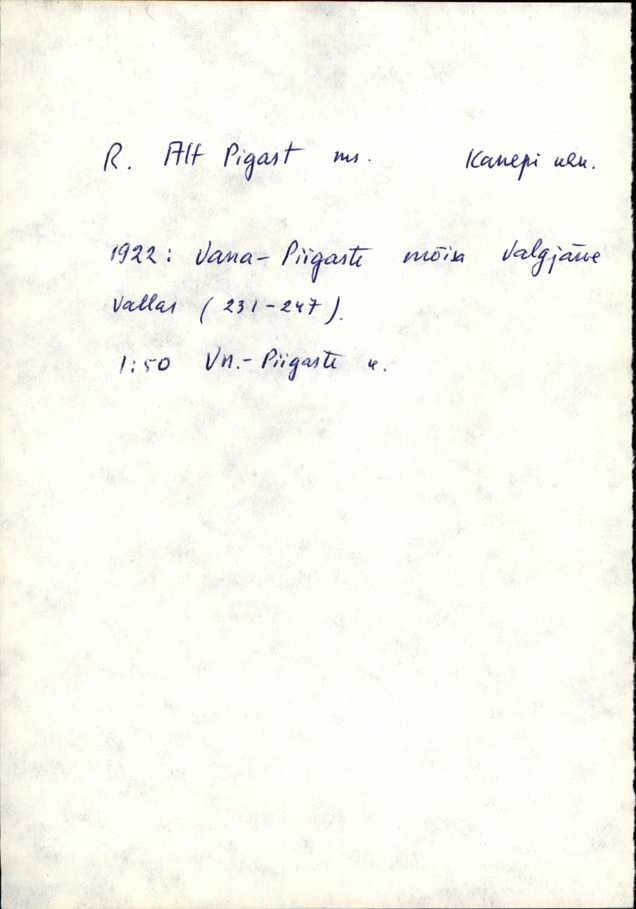 R. Alt Pigast ms. Kanepi khk.
1922: Vana-Piigaste mõisa Valgjärve
vallas (231-247).
1:50 Vn.-Piigaste k.